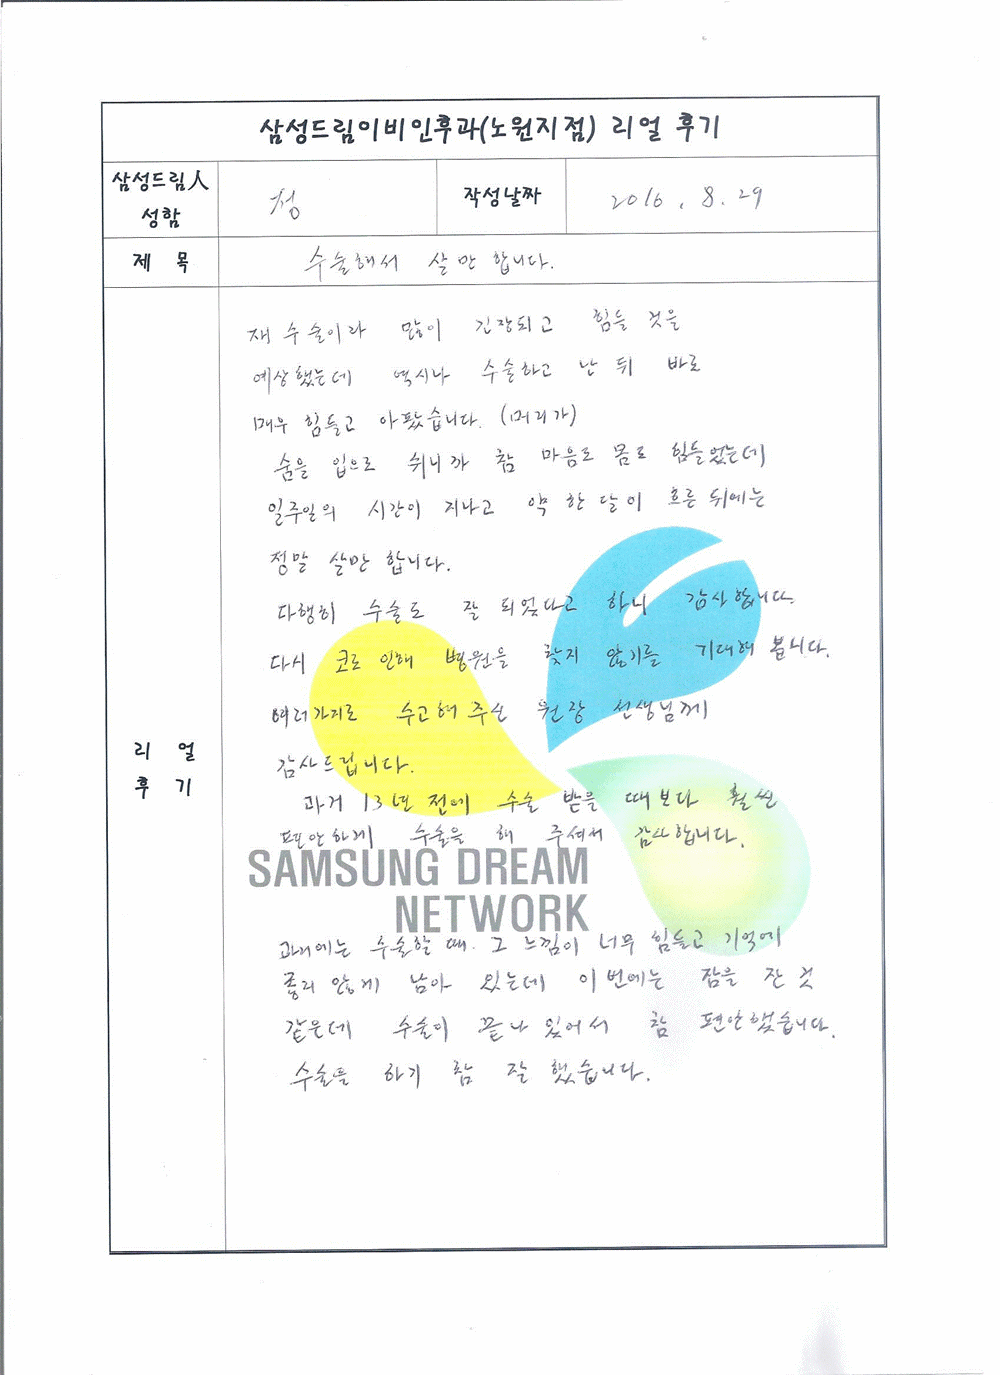 삼성드림이비인후과(노원지점) 리얼 후기
삼성드림人
성함
정
작성날짜
2016. 8. 29
제 목
수술해서 살만 합니다.
리 얼
후 기
재 수술이라 많이 긴장되고 힘들 것을
예상했는데 역시나 수술하고 난 뒤 바로
매우 힘들고 아팠습니다. (머리가)
숨을 입으로 쉬니까 참 마음도 몸도 힘들었는데
일주일의 시간이 지나고 약 한 달이 흐른 뒤에는
정말 살만 합니다.
다행히 수술도 잘 되었다고 하니 감사합니다.
다시 코로 인해 병원을 찾지 않기를 기대해 봅니다.
여러가지로 수고해 주신 원장 선생님께
감사드립니다.
과거 13년 전에 수술 받을 때보다 훨씬
편안하게 수술을 해 주셔서 감사합니다.
SAMSUNG DREAM
NETWORK
과거에는 수술할 때. 그 느낌이 너무 힘들고 기억에
좋지 않게 남아 있는데 이번에는 잠을 잔 것
같은데 수술이 끝나 있어서 참 편안했습니다.
수술을 하기 참 잘 했습니다.